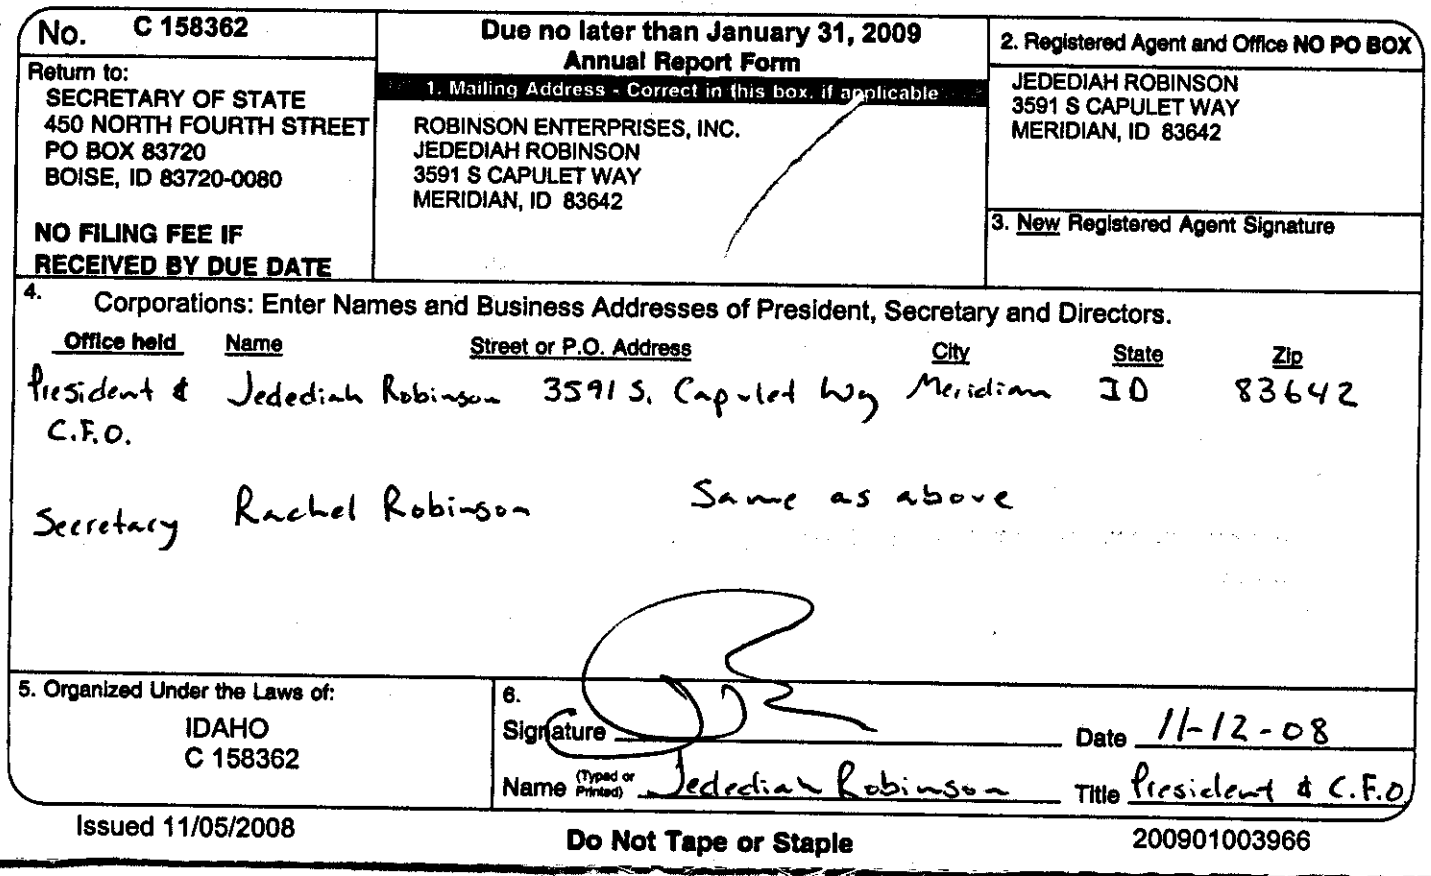 No. C 158362
Return to:
SECRETARY OF STATE
450 NORTH FOURTH STREET
PO BOX 83720
BOISE, ID 83720-0080
NO FILING FEE IF
RECEIVED BY DUE DATE
Due no later than January 31, 2009
Annual Report Form
1. Mailing Address - Correct in this box, if applicable
ROBINSON ENTERPRISES, INC.
JEDEDIAH ROBINSON
3591 S CAPULET WAY
MERIDIAN, ID 83642
2. Registered Agent and Office NO PO BOX
JEDEDIAH ROBINSON
3591 S CAPULET WAY
MERIDIAN, ID 83642
3. New Registered Agent Signature
4. Corporations: Enter Names and Business Addresses of President, Secretary and Directors.
Office held Name Street or P.O. Address City State Zip
President & Jedediah Robinson 3591 S. Capulet Wy Meridian ID 83642
C.F.O.
Secretary Rachel Robinson Same as above
5. Organized Under the Laws of:
IDAHO
C 158362
6.
Signature Date 11-12-08
Name (Typed or Printed) Jedediah Robinson Title President & C.F.O
Issued 11/05/2008 Do Not Tape or Staple 200901003966